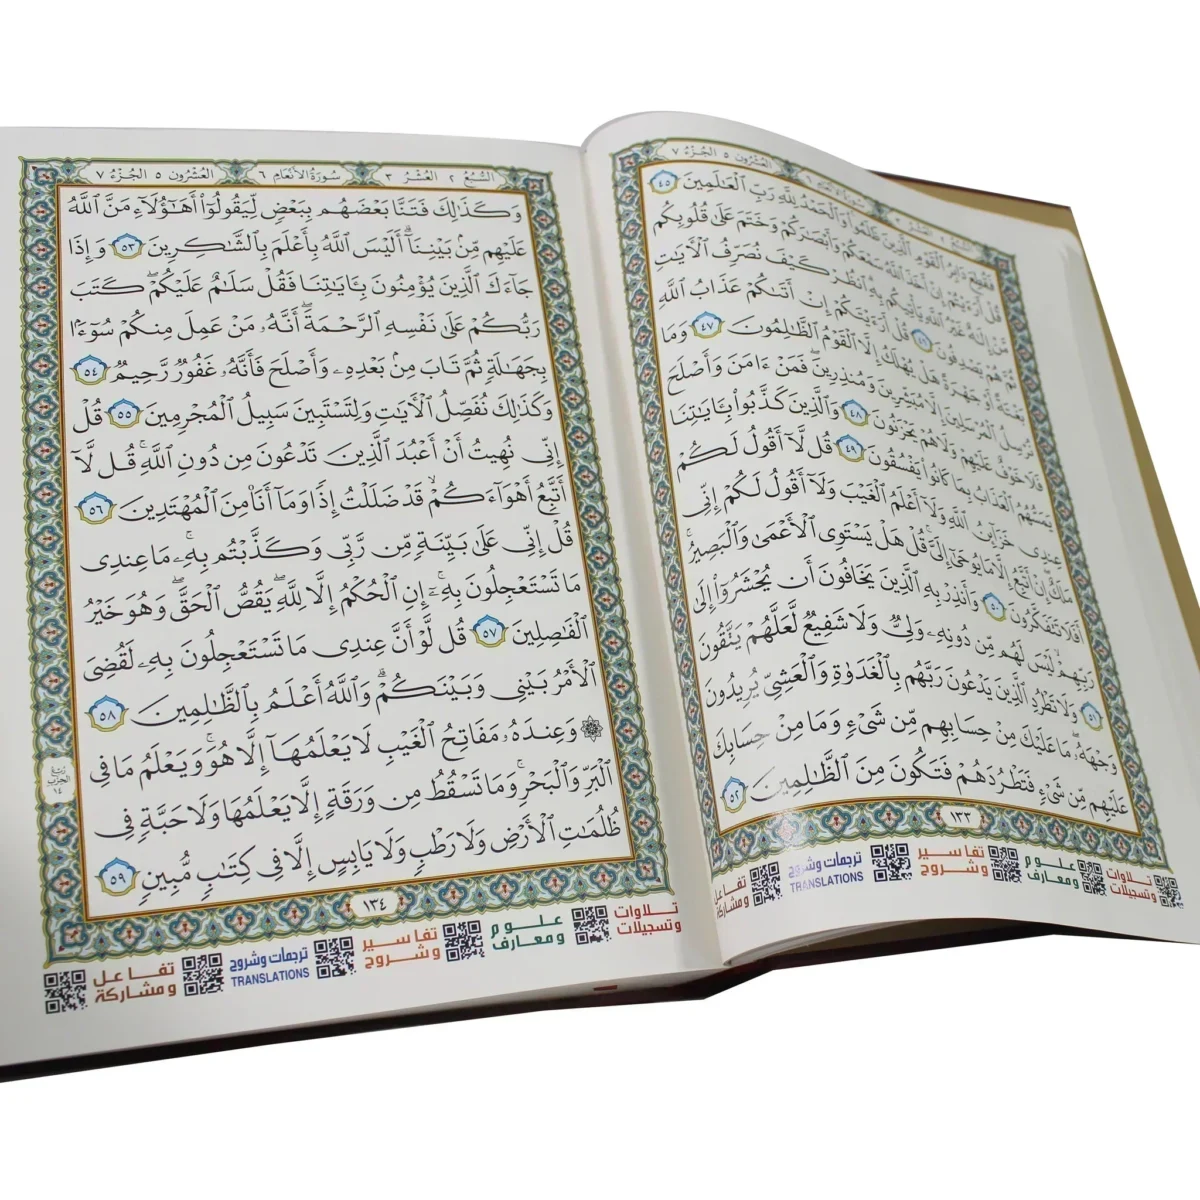 العشرون ٥ الجزء ٧
فَقُطِعَ دَابِرُ ٱلۡقَوۡمِ ٱلَّذِينَ ظَلَمُواْۚ وَٱلۡحَمۡدُ لِلَّهِ رَبِّ ٱلۡعَٰلَمِينَ ٤٥
قُلۡ أَرَءَيۡتُمۡ إِنۡ أَخَذَ ٱللَّهُ سَمۡعَكُمۡ وَأَبۡصَٰرَكُمۡ وَخَتَمَ عَلَىٰ قُلُوبِكُم
مَّنۡ إِلَٰهٌ غَيۡرُ ٱللَّهِ يَأۡتِيكُم بِهِۗ ٱنظُرۡ كَيۡفَ نُصَرِّفُ ٱلۡأٓيَٰتِ
ثُمَّ هُمۡ يَصۡدِفُونَ ٤٦ قُلۡ أَرَءَيۡتَكُمۡ إِنۡ أَتَىٰكُمۡ عَذَابُ ٱللَّهِ
بَغۡتَةً أَوۡ جَهۡرَةً هَلۡ يُهۡلَكُ إِلَّا ٱلۡقَوۡمُ ٱلظَّٰلِمُونَ ٤٧ وَمَا
نُرۡسِلُ ٱلۡمُرۡسَلِينَ إِلَّا مُبَشِّرِينَ وَمُنذِرِينَۖ فَمَنۡ ءَامَنَ وَأَصۡلَحَ
فَلَا خَوۡفٌ عَلَيۡهِمۡ وَلَا هُمۡ يَحۡزَنُونَ ٤٨ وَٱلَّذِينَ كَذَّبُواْ بِـَٔايَٰتِنَا
يَمَسُّهُمُ ٱلۡعَذَابُ بِمَا كَانُواْ يَفۡسُقُونَ ٤٩ قُل لَّآ أَقُولُ لَكُمۡ
عِندِي خَزَآئِنُ ٱللَّهِ وَلَآ أَعۡلَمُ ٱلۡغَيۡبَ وَلَآ أَقُولُ لَكُمۡ إِنِّي
مَلَكٌۖ إِنۡ أَتَّبِعُ إِلَّا مَا يُوحَىٰٓ إِلَيَّۚ قُلۡ هَلۡ يَسۡتَوِي ٱلۡأَعۡمَىٰ وَٱلۡبَصِيرُۚ
أَفَلَا تَتَفَكَّرُونَ ٥٠ وَأَنذِرۡ بِهِ ٱلَّذِينَ يَخَافُونَ أَن يُحۡشَرُوٓاْ إِلَىٰ
رَبِّهِمۡ لَيۡسَ لَهُم مِّن دُونِهِۦ وَلِيٌّ وَلَا شَفِيعٌ لَّعَلَّهُمۡ يَتَّقُونَ
٥١ وَلَا تَطۡرُدِ ٱلَّذِينَ يَدۡعُونَ رَبَّهُم بِٱلۡغَدَوٰةِ وَٱلۡعَشِيِّ يُرِيدُونَ
وَجۡهَهُۥۖ مَا عَلَيۡكَ مِنۡ حِسَابِهِم مِّن شَيۡءٍ وَمَا مِنۡ حِسَابِكَ
عَلَيۡهِم مِّن شَيۡءٍ فَتَطۡرُدَهُمۡ فَتَكُونَ مِنَ ٱلظَّٰلِمِينَ ٥٢
١٣٣
تلاوات وتسجيلات
علوم ومعارف
تفاسير وشروح
ترجمات وشروح TRANSLATIONS
تفاعل ومشاركة
السبع ٢ العشر ٣ سورة الأنعام ٦ العشرون ٥ الجزء ٧
وَكَذَٰلِكَ فَتَنَّا بَعۡضَهُم بِبَعۡضٍ لِّيَقُولُوٓاْ أَهَٰٓؤُلَآءِ مَنَّ ٱللَّهُ
عَلَيۡهِم مِّنۢ بَيۡنِنَآۗ أَلَيۡسَ ٱللَّهُ بِأَعۡلَمَ بِٱلشَّٰكِرِينَ ٥٣ وَإِذَا
جَآءَكَ ٱلَّذِينَ يُؤۡمِنُونَ بِـَٔايَٰتِنَا فَقُلۡ سَلَٰمٌ عَلَيۡكُمۡۖ كَتَبَ
رَبُّكُمۡ عَلَىٰ نَفۡسِهِ ٱلرَّحۡمَةَ أَنَّهُۥ مَنۡ عَمِلَ مِنكُمۡ سُوٓءَۢا
بِجَهَٰلَةٍ ثُمَّ تَابَ مِنۢ بَعۡدِهِۦ وَأَصۡلَحَ فَأَنَّهُۥ غَفُورٌ رَّحِيمٌ ٥٤
وَكَذَٰلِكَ نُفَصِّلُ ٱلۡأٓيَٰتِ وَلِتَسۡتَبِينَ سَبِيلُ ٱلۡمُجۡرِمِينَ ٥٥ قُلۡ
إِنِّي نُهِيتُ أَنۡ أَعۡبُدَ ٱلَّذِينَ تَدۡعُونَ مِن دُونِ ٱللَّهِۚ قُل لَّآ
أَتَّبِعُ أَهۡوَآءَكُمۡ قَدۡ ضَلَلۡتُ إِذًا وَمَآ أَنَا۠ مِنَ ٱلۡمُهۡتَدِينَ ٥٦
قُلۡ إِنِّي عَلَىٰ بَيِّنَةٍ مِّن رَّبِّي وَكَذَّبۡتُم بِهِۦۚ مَا عِندِي
مَا تَسۡتَعۡجِلُونَ بِهِۦٓۚ إِنِ ٱلۡحُكۡمُ إِلَّا لِلَّهِۖ يَقُصُّ ٱلۡحَقَّۖ وَهُوَ خَيۡرُ
ٱلۡفَٰصِلِينَ ٥٧ قُل لَّوۡ أَنَّ عِندِي مَا تَسۡتَعۡجِلُونَ بِهِۦ لَقُضِيَ
ٱلۡأَمۡرُ بَيۡنِي وَبَيۡنَكُمۡۗ وَٱللَّهُ أَعۡلَمُ بِٱلظَّٰلِمِينَ ٥٨
۞ وَعِندَهُۥ مَفَاتِحُ ٱلۡغَيۡبِ لَا يَعۡلَمُهَآ إِلَّا هُوَۚ وَيَعۡلَمُ مَا فِي
ٱلۡبَرِّ وَٱلۡبَحۡرِۚ وَمَا تَسۡقُطُ مِن وَرَقَةٍ إِلَّا يَعۡلَمُهَا وَلَا حَبَّةٍ فِي
ظُلُمَٰتِ ٱلۡأَرۡضِ وَلَا رَطۡبٍ وَلَا يَابِسٍ إِلَّا فِي كِتَٰبٍ مُّبِينٍ ٥٩
ربع الحزب ١٤
١٣٤
تلاوات وتسجيلات
علوم ومعارف
تفاسير وشروح
ترجمات وشروح TRANSLATIONS
تفاعل ومشاركة